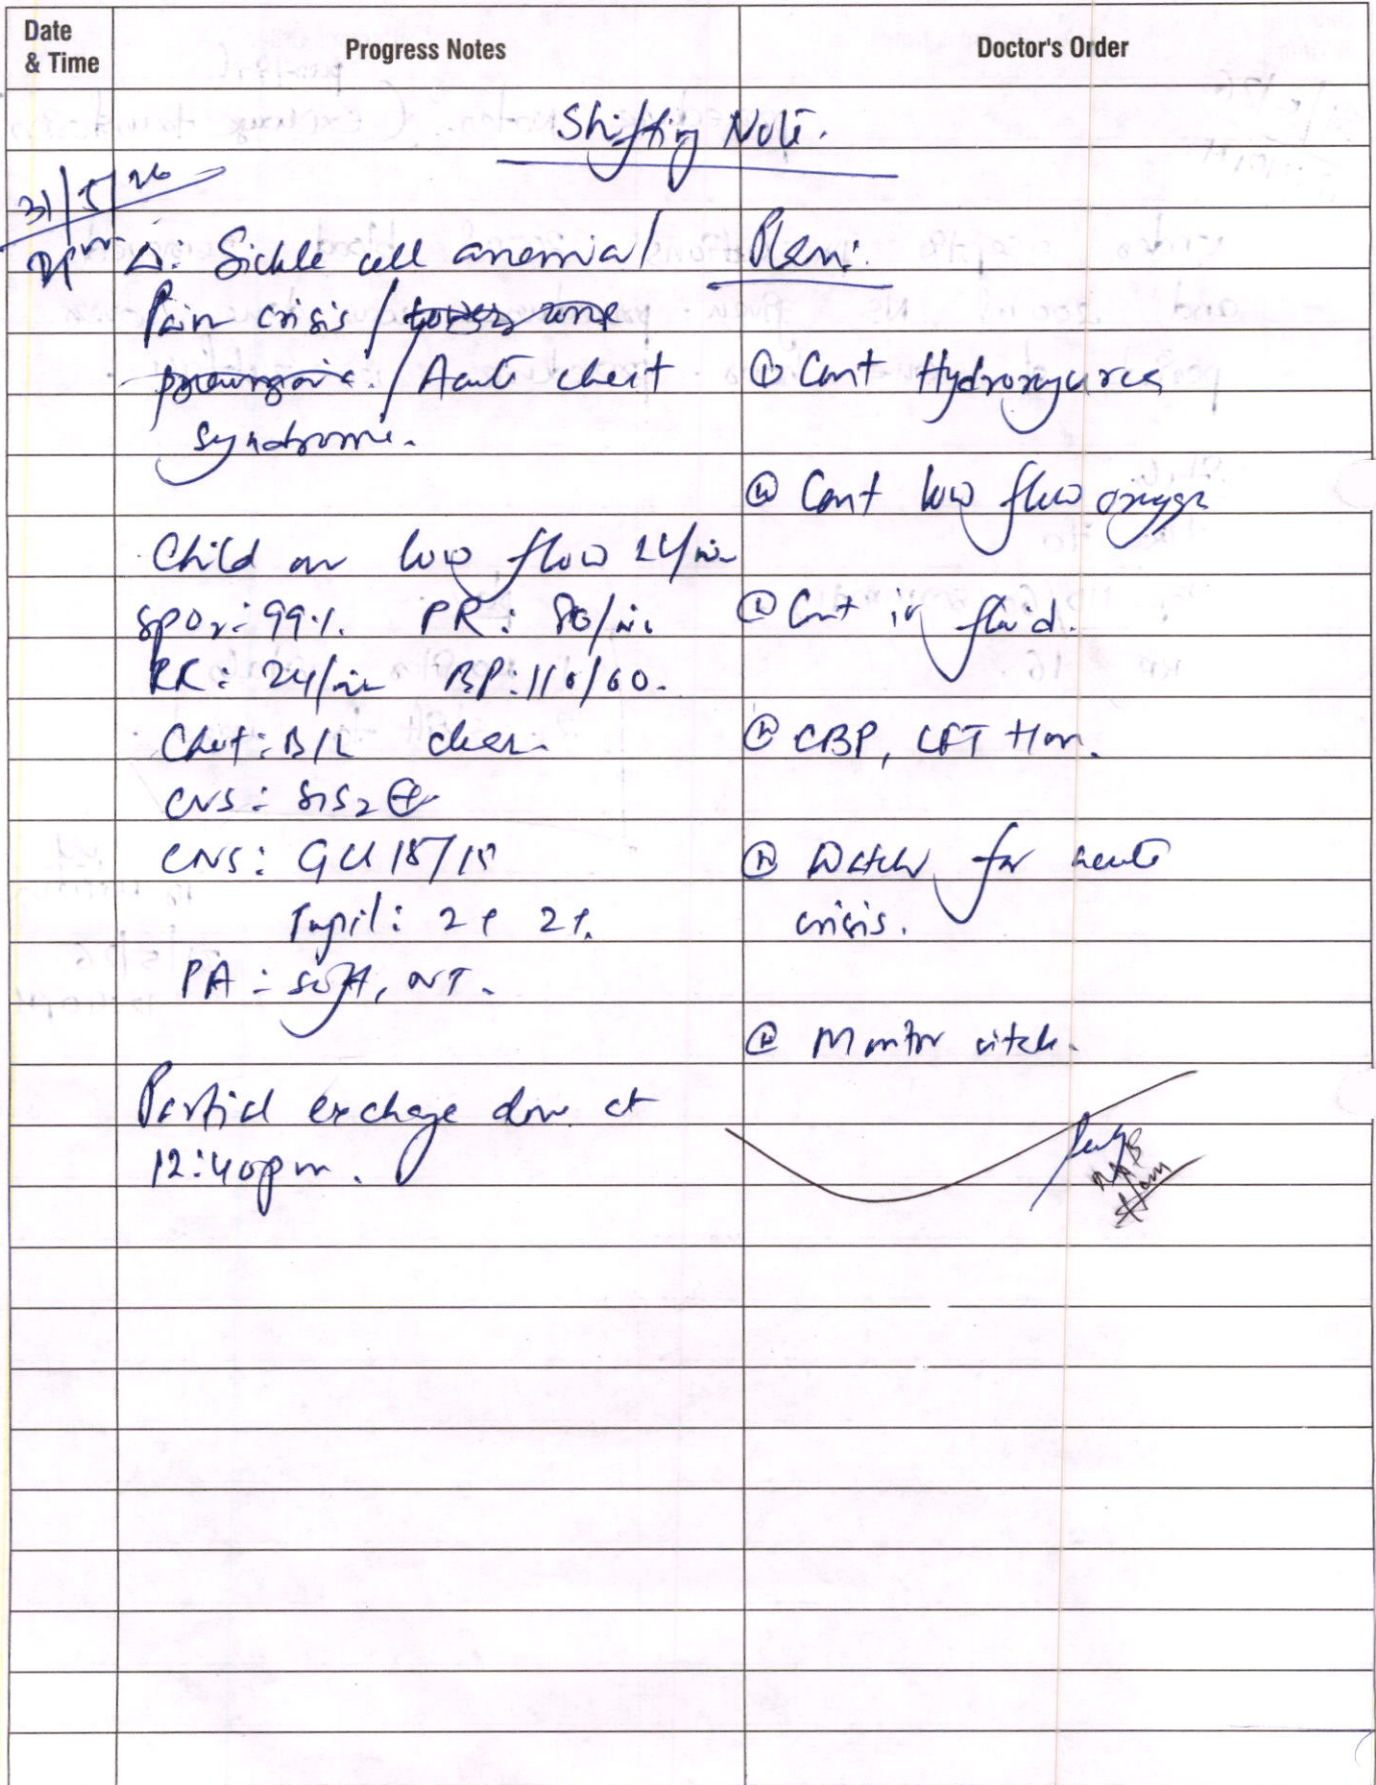 Date
& Time
Progress Notes
Doctor's Order
Shifting Note.
31/5/26
2pm
Δ: Sickle cell anemia/
Pain crisis / lower zone
pneumonia. / Acute chest
syndrome.
Child on low flow 2L/min
SpO2: 99%. PR: 80/min
RR: 24/min BP: 110/60.
Chest: B/L clear.
CVS: S1S2 ⊕
CNS: GCS 15/15
Pupil: 2+ 2+.
PA: soft, NT.
Partial exchange done at
12:40pm.
Plan:
Cont Hydroxyurea
Cont low flow oxygen
Cont iv fluid.
CBP, LFT
Watch for acute
crisis.
Monitor vitals.